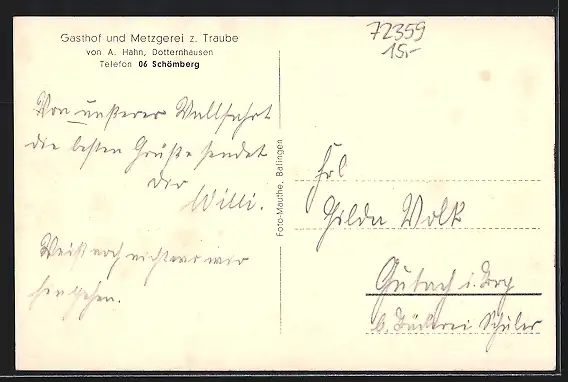 Gasthof und Metzgerei z. Traube
von A. Hahn, Dotternhausen
Telefon 06 Schömberg
72359
15,-
Von unserer Wallfahrt
die besten Grüße sendet
dir
Willi.
Weiß noch nicht wo wir
hingehen.
Foto-Mauthe, Balingen
Frl
Hilda Volk
Gutach i. Brg
b. Bäckerei Schuler